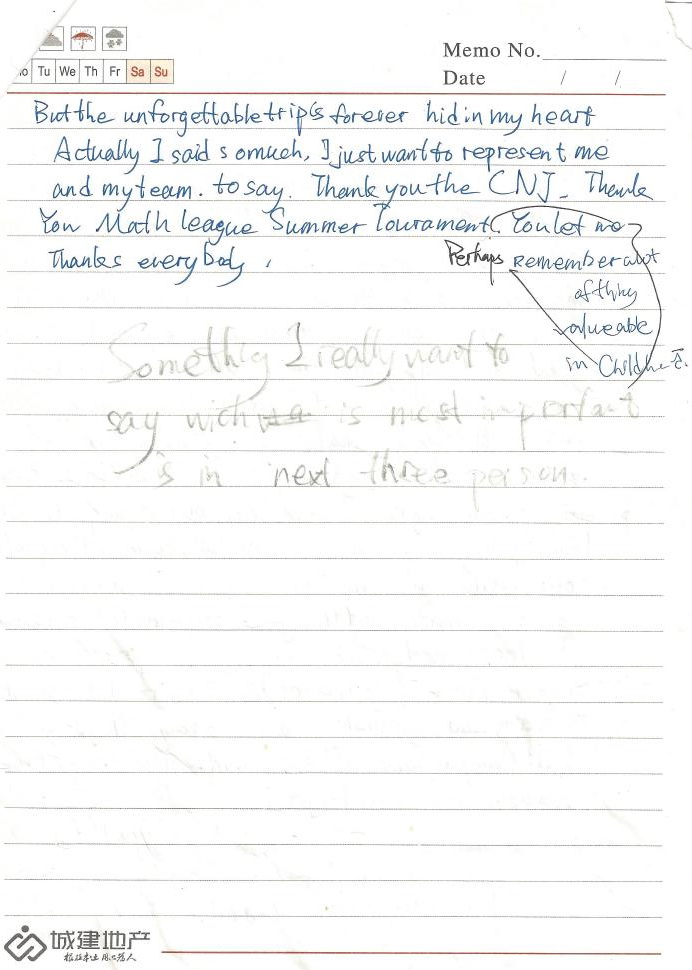 Memo No.
Tu We Th Fr Sa Su
Date / /
But the unforgettable trip is forever hid in my heart
Actually I said so much, I just want to represent me
and my team. to say. Thank you the CNJ. Thank
You Math league Summer Tourament. You let me
Thanks everybody. Perhaps remember a lot
of thing
valueable
in
Something I really want to
say wich is most important
is in next three person.
城建地产